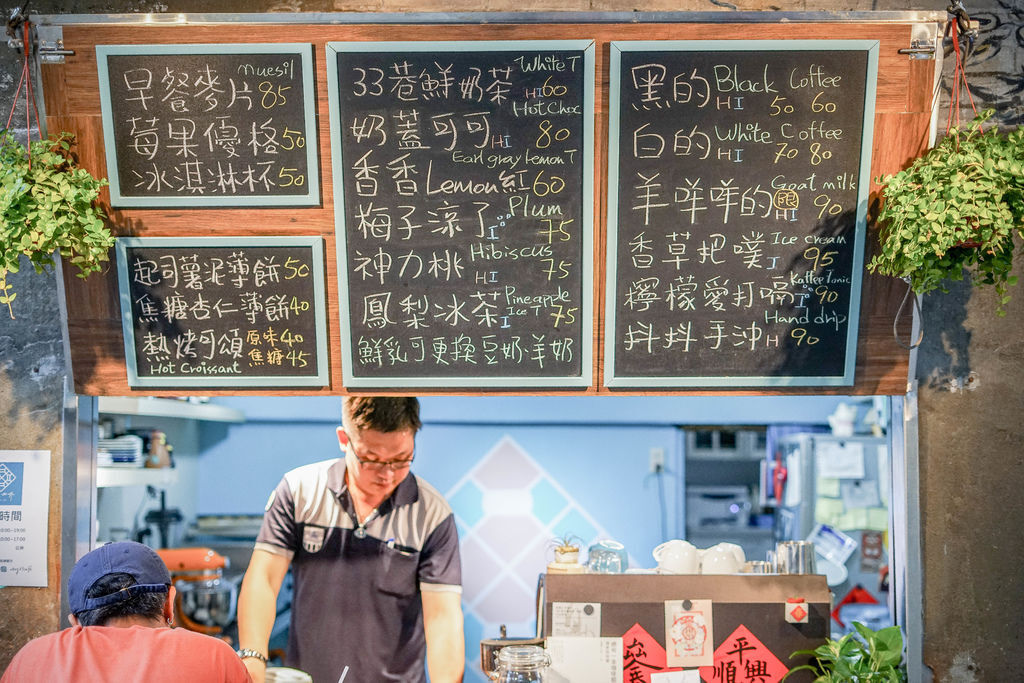 早餐麥片 muesil 85
莓果優格 50
冰淇淋杯 50
起司薯泥薄餅 50
焦糖杏仁薄餅 40
熱烤可頌 原味 40
Hot Croissant 焦糖 45
White T
33巷鮮奶茶 HI 60
Hot Choc
奶蓋可可 HI 80
Earl gray Lemon T
香香Lemon紅 60
梅子涼了 Plum I 75
神力桃 Hibiscus HI 75
鳳梨冰茶 Pineapple Ice T I 75
鮮乳可更換豆奶·羊奶
黑的 Black Coffee
HI 50 60
白的 White Coffee
HI 70 80
羊咩咩的 Goat milk
限 HI 90
香草把噗 Ice cream
I 95
檸檬愛打嗝 Kaffee Tonic
I 90
抖抖手沖 Hand drip
H 90
時間
平
順興